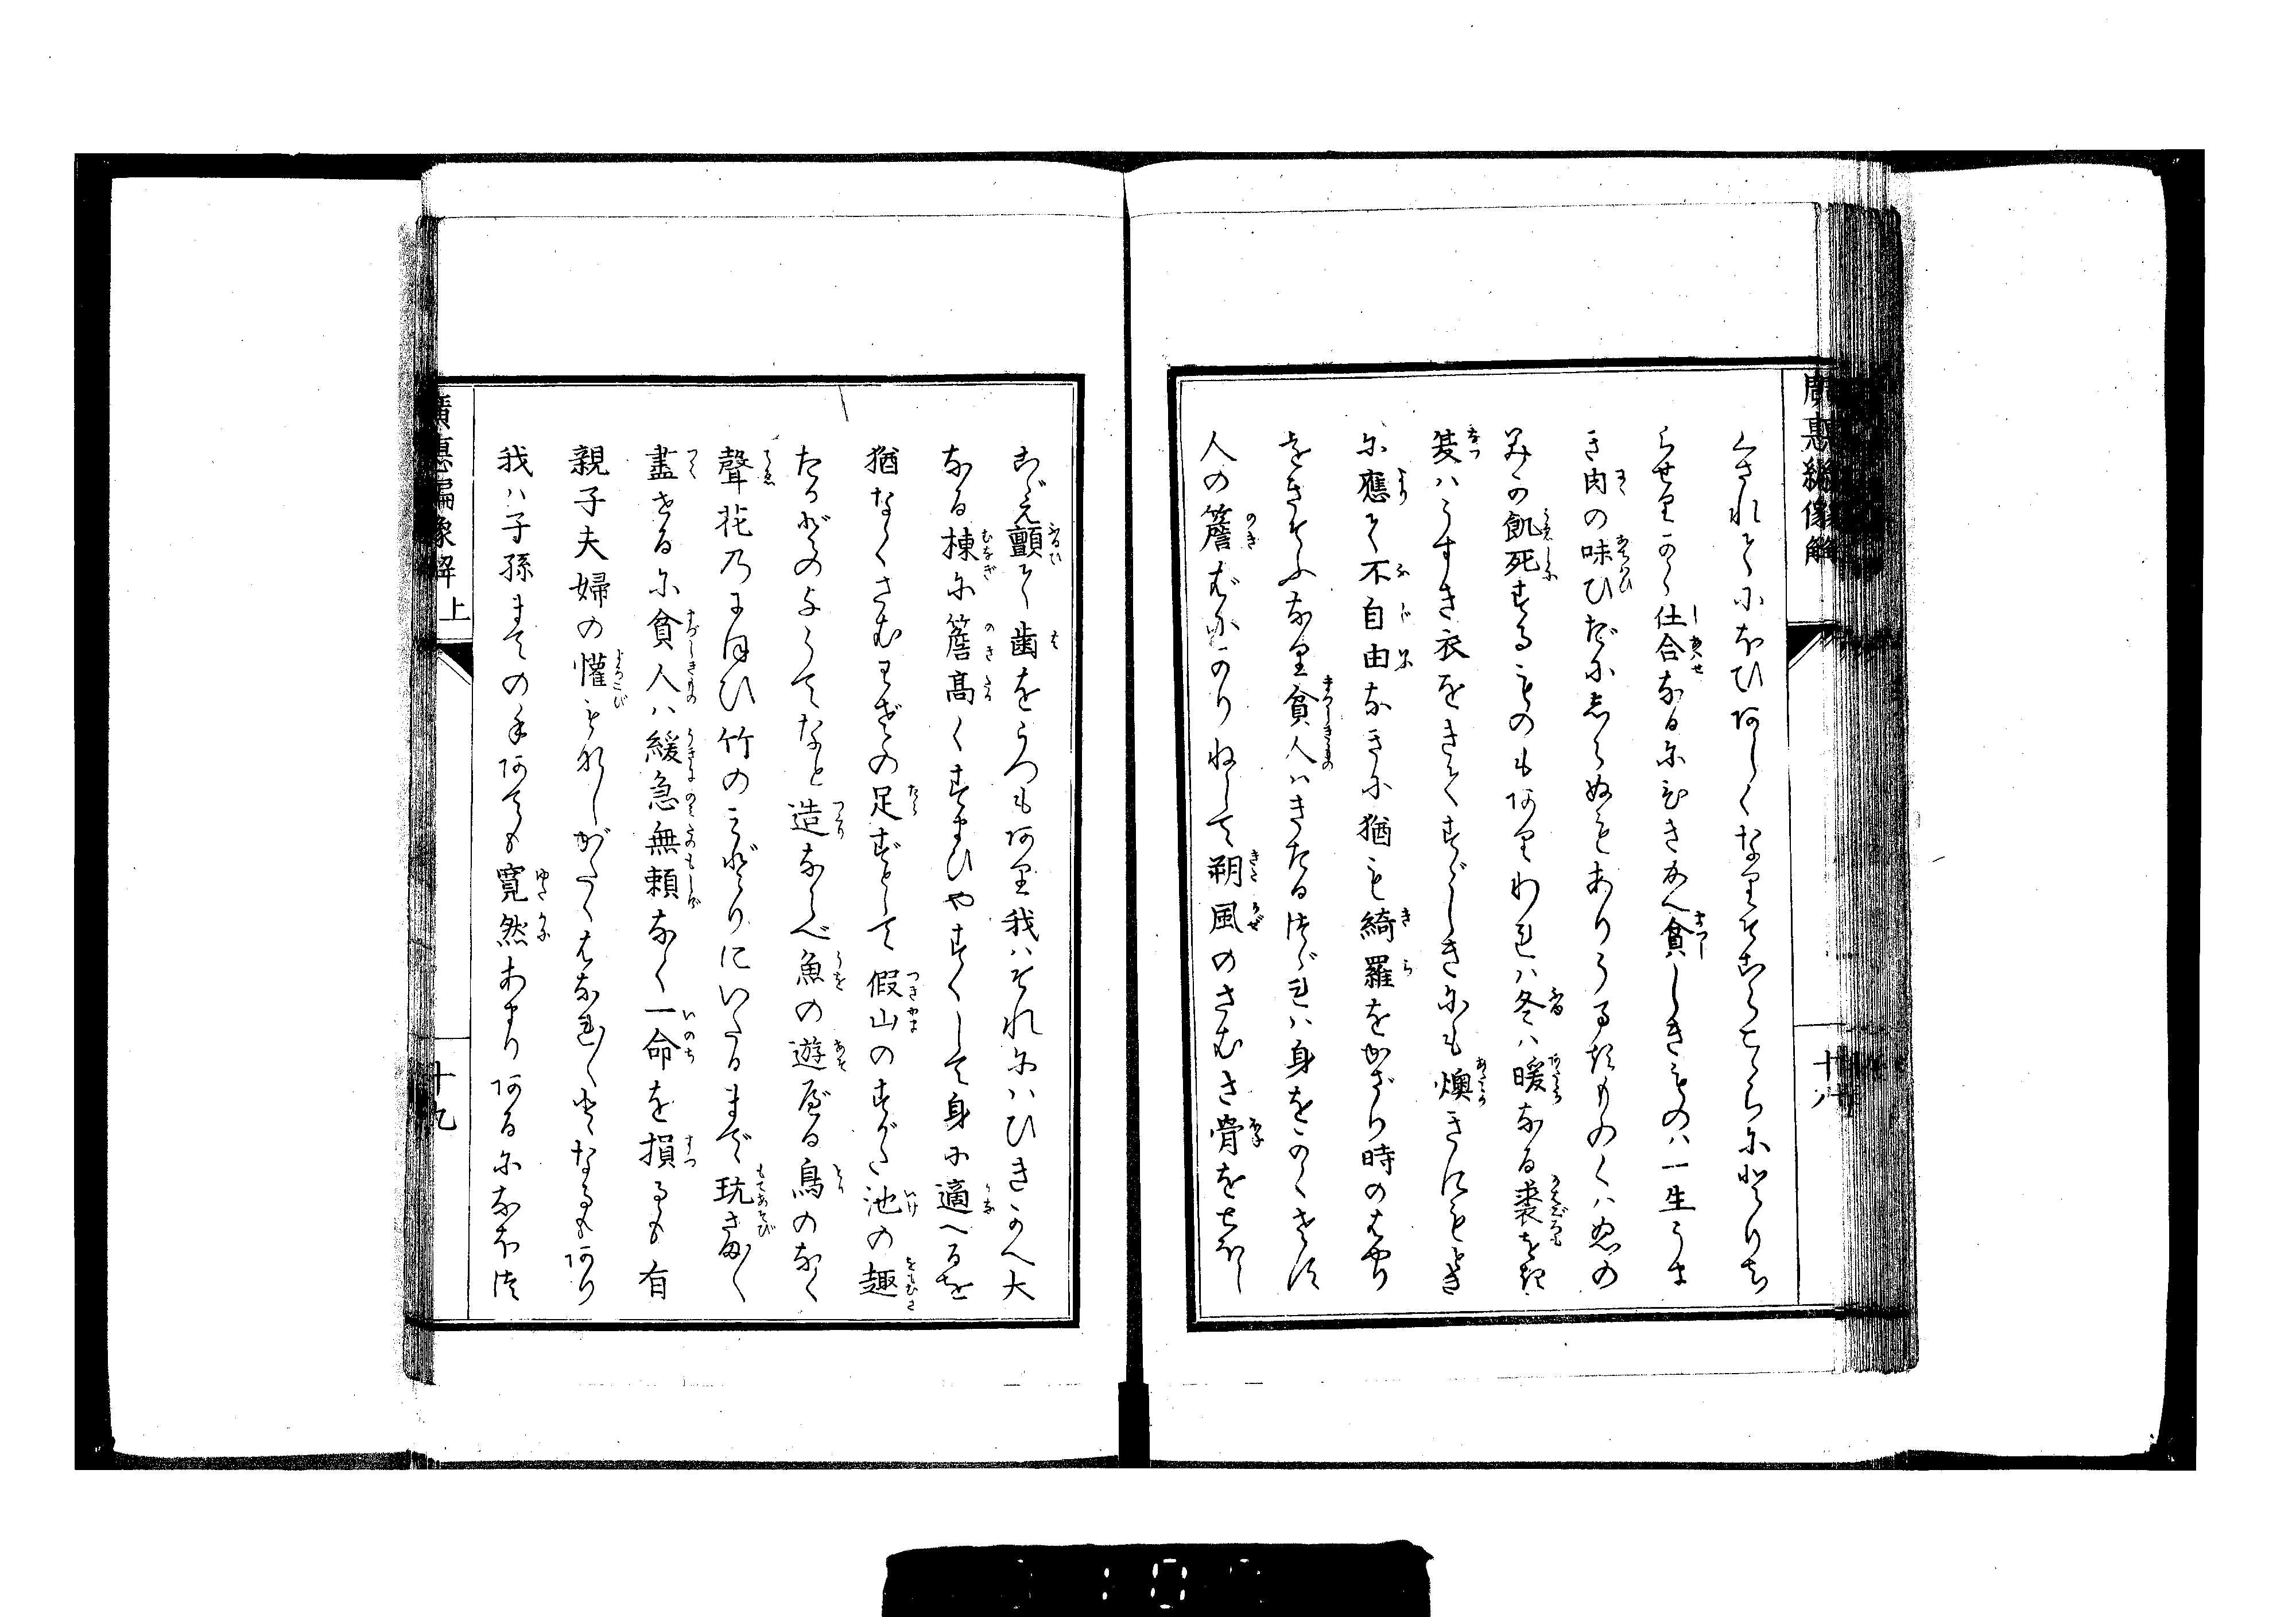 くされてくにほひあしくなりてすつ
らせり
仕合なるに
貧しきものハ一生うま
き肉の味ひだにしらぬもありうるたものくハぬの
みか飢死するものもありわれハ冬ハ暖なる裘をき
夏ハうすき衣をきてすゞしきにも燠きにもとき
に應て不自由なきに猶も綺羅をかざり時のはやり
をきそふなり貧人ハきたるつゞれハ身をかくさず
人の簷ばにかりねして朔風のさむさ骨をとほし
こゞえ顫て歯をうつもあり我ハそれにハひきかへ大
なる棟に簷高くすまひやすくして身に適へるを
猶なくさむわざの足ずとて假山のすがた池の趣
たるがのようてなと造ならべ魚の遊べる鳥のなく
聲花乃にほひ竹のみどりにいたるまで玩き
盡せるに貧人ハ緩急無頼なく一命を損るも有
親子夫婦の懽もなしがたくはなれ〱になるもあり
我ハ子孫までの手あても寛然あまりあるになほ
廣惠編像解 上
十八
十九